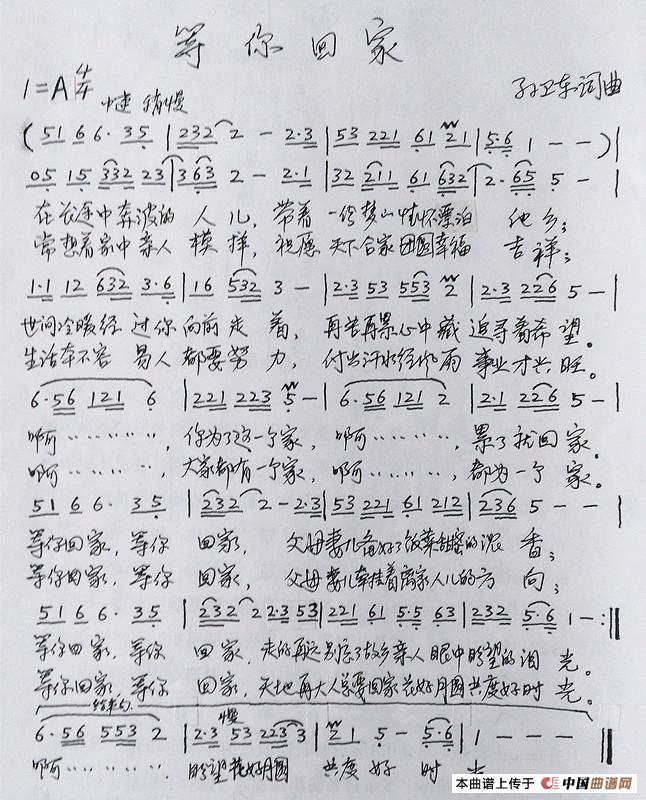 等你回家
1=A 4/4 中速 稍慢 孙卫东词曲
( 51 6 6· 35 | 232 2 - 2·3 | 53 221 61 21 | 5·6 1 - - ) |
05 15 332 23 | 363 2 - 2·1 | 32 211 61 632 | 2· 65 5 - |
在长途中奔波的 人儿, 带着一份梦山情怀漂泊 他乡;
常想着家中亲人 模样, 祝愿天下合家团圆幸福 吉祥;
1·1 12 632 3·6 | 16 532 3 - | 2·3 53 553 2 | 2·3 226 5 - |
世间冷暖经过你向前走着, 再苦再累心中藏追寻着希望。
生活本不容易人都要努力, 付出汗水经风雨事业才兴旺。
6·56 121 6 | 221 223 5 - | 6·56 121 2 | 2·1 226 5 - |
啊………, 你为了这一个家, 啊………, 累了就回家。
啊………, 大家都有一个家, 啊………, 都为一个家。
51 6 6· 35 | 232 2 - 2·3 | 53 221 61 212 | 236 5 - - |
等你回家, 等你回家, 父母妻儿备好了饭菜甜蜜的浓香;
等你回家, 等你回家, 父母妻儿牵挂着离家人儿的方向;
51 6 6· 35 | 232 2 2·3 53 | 221 61 5·5 63 | 232 5·6 1 - :‖
等你回家, 等你回家, 走的再远别忘了故乡亲人眼中盼望的泪光。
等你回家, 等你回家, 天地再大人总要回家花好月圆共度好时光。
结束句
6·56 553 2 | 2·3 53 223 3 | 2 1 5 - 5·6 | 1 - - - ‖
慢
啊………, 盼望花好月圆 共度好时
本曲谱上传于 中国曲谱网